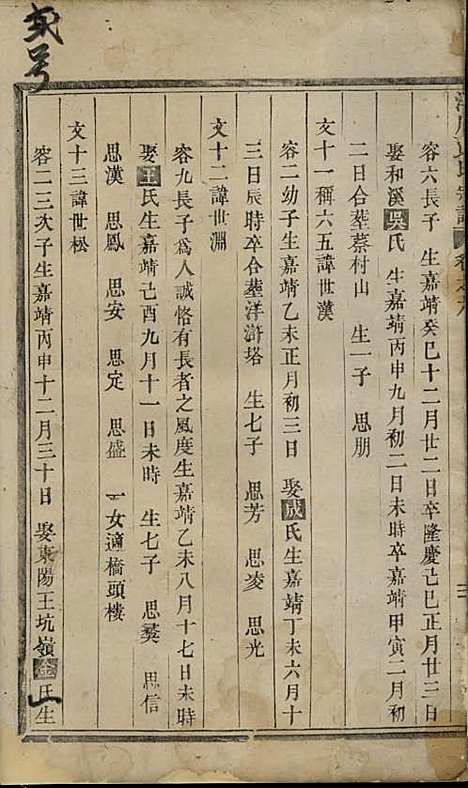 宗譜
容六長子 生嘉靖癸巳十二月廿二日卒隆慶己巳正月廿三日
娶和溪吳氏 生嘉靖丙申九月初二日未時卒嘉靖甲寅二月初
二日合塟蔡村山 生一子 思朋
文十一稱六五諱世漢
容二幼子生嘉靖乙未正月初三日 娶成氏生嘉靖丁未六月十
三日辰時卒合塟洋滸塔 生七子 思芳 思凌 思光
文十二諱世淵
容九長子為人誠恪有長者之風度生嘉靖乙未八月十七日未時
娶王氏生嘉靖己酉九月十一日未時 生七子 思葵 思信
思漢 思鳳 思安 思定 思盛 一女適橋頭樓
文十三諱世松
容二三次子生嘉靖丙申十二月三十日 娶東陽王坑嶺金氏生